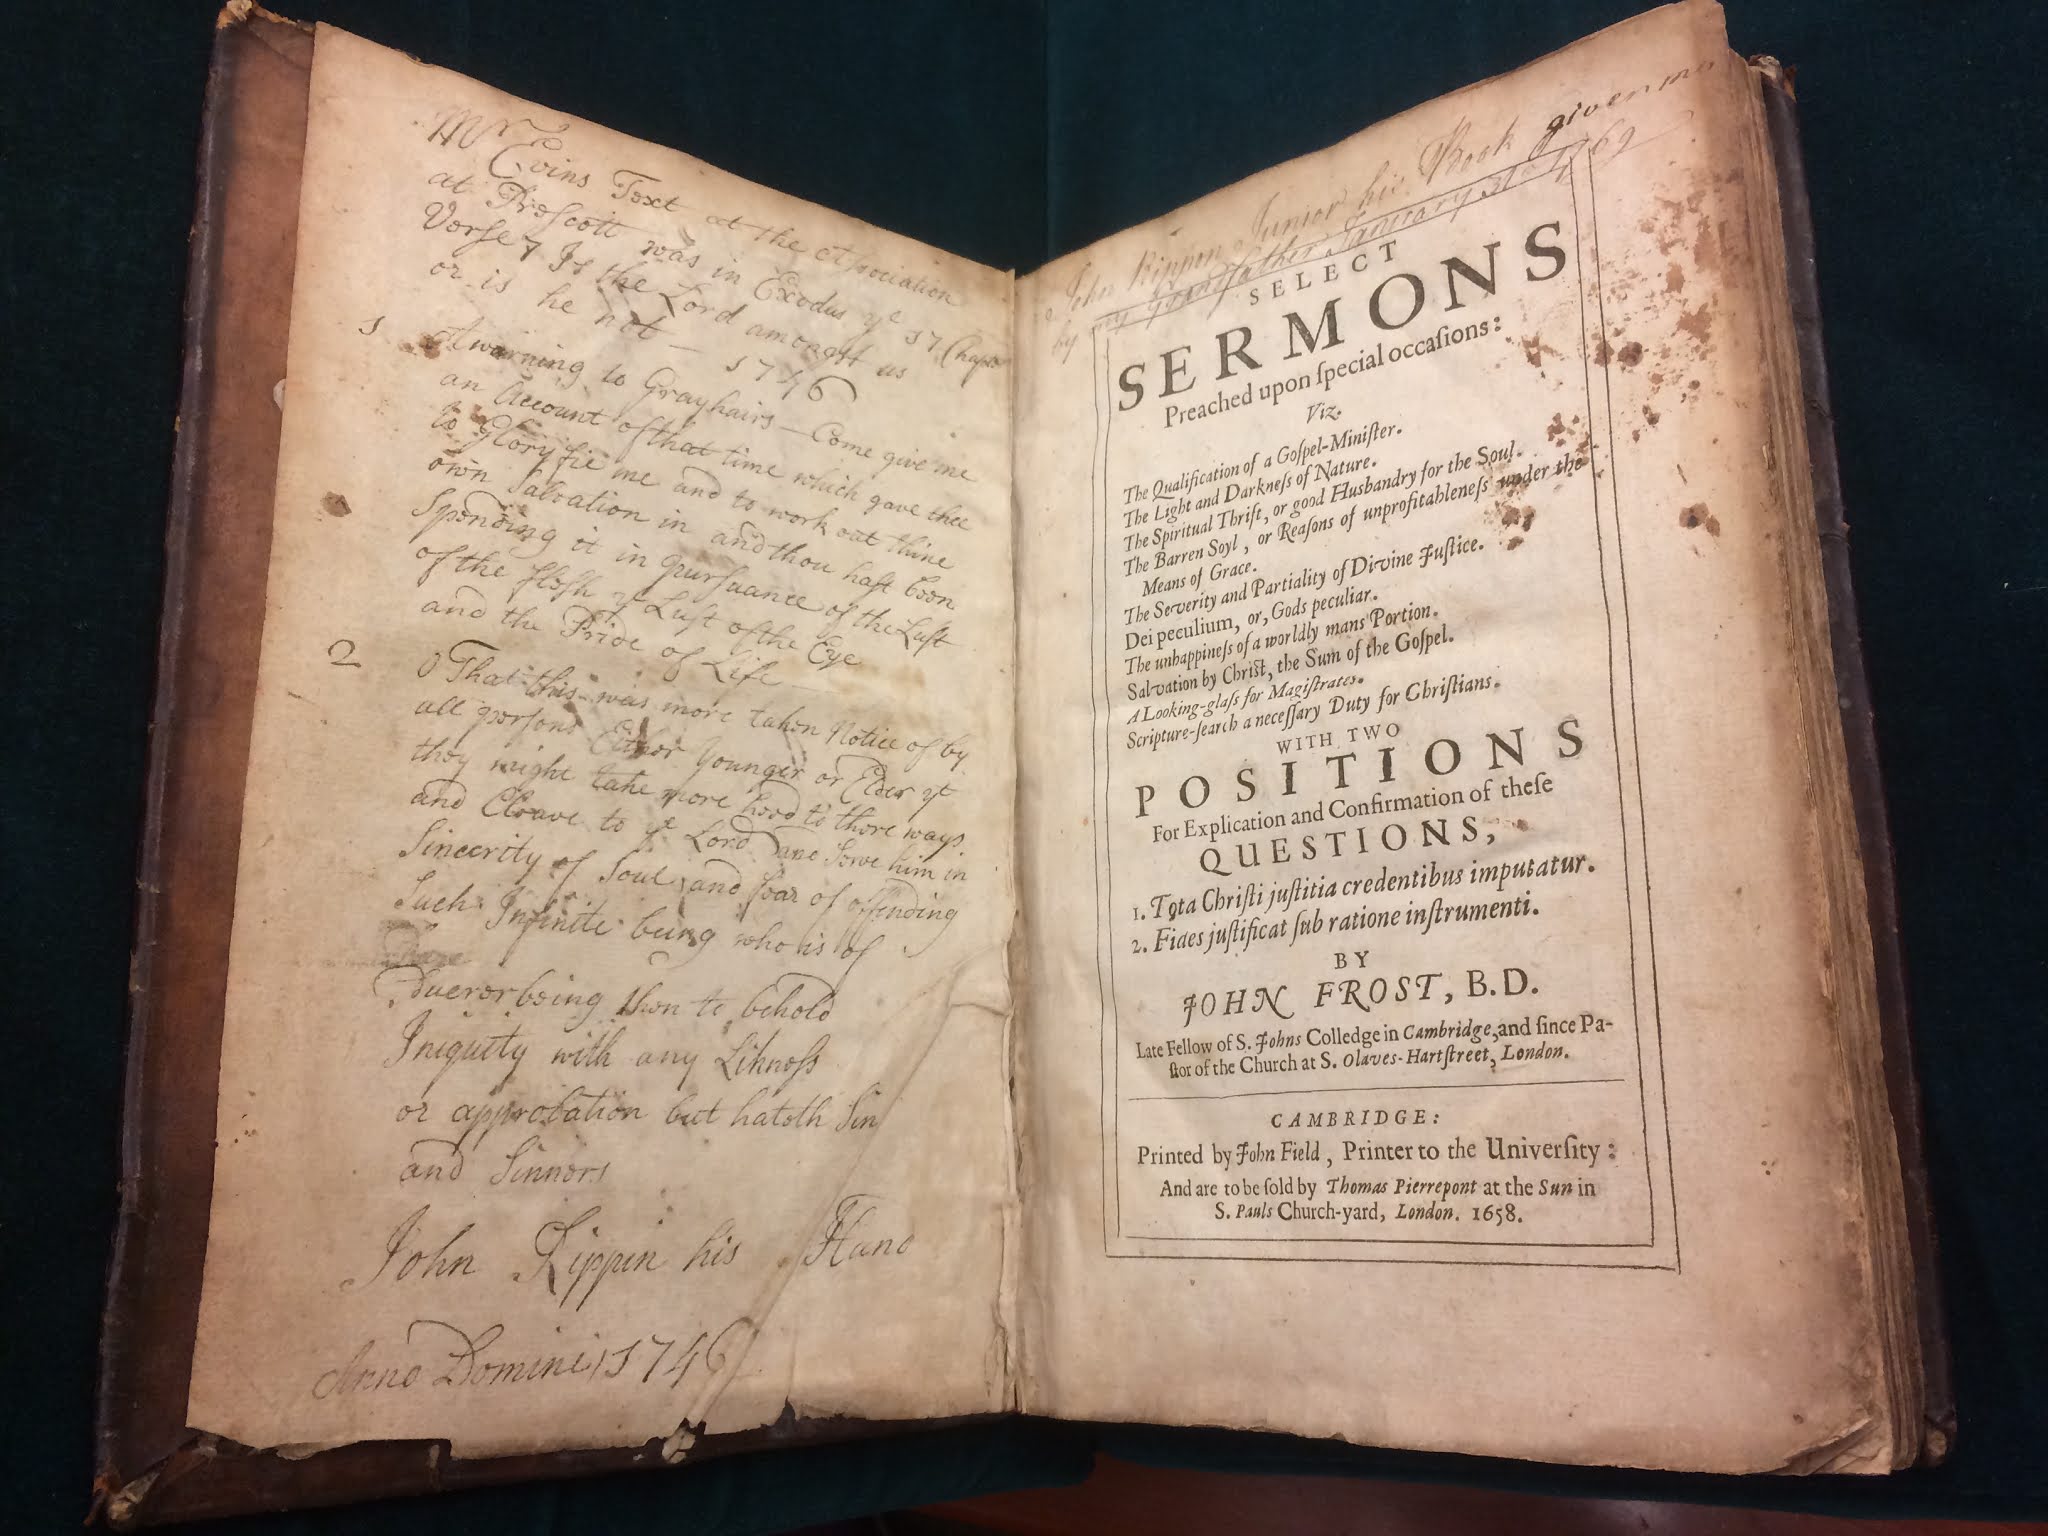 Mr
Evins Text at the Association
at Prescott was in Exodus ye 17 Chapr
Verse 7 Is the Lord amongst us
or is he not — 1746
1 A warning to Grayhairs — Come give me
an Account of that time which gave thee
to Gloryfie me and to work out thine
own Salvation in and thou hast been
Spending it in pursuance of the Lust
of the flesh ye Lust of the Eye
and the Pride of Life —
2 O That this was more taken Notice of by
all persons Either Younger or Elder yt
they might take more heed to there ways
and Cleave to ye Lord and Serve him in
Sincerity of Soul and fear of offending
Such Infinite being who is of
being then to behold
Iniquity with any Likness
or approbation but hateth Sin
and Sinners
John Rippin his Hand
Anno Domini 1746
John Rippon Junior his Book given me
by my Grandfather January 31st 1769
SELECT
SERMONS
Preached upon ſpecial occaſions:
Viz.
The Qualification of a Goſpel-Miniſter.
The Light and Darkneſs of Nature.
The Spiritual Thrift, or good Husbandry for the Soul.
The Barren Soyl, or Reaſons of unprofitableneſs under the
Means of Grace.
The Severity and Partiality of Divine Juſtice.
Dei peculium, or, Gods peculiar.
The unhappineſs of a worldly mans Portion.
Salvation by Chriſt, the Sum of the Goſpel.
A Looking-glaſs for Magiſtrates.
Scripture-ſearch a neceſſary Duty for Chriſtians.
WITH TWO
POSITIONS
For Explication and Confirmation of theſe
QUESTIONS,
1. Tota Chriſti juſtitia credentibus imputatur.
2. Fides juſtificat ſub ratione inſtrumenti.
BY
JOHN FROST, B.D.
Late Fellow of S. Johns Colledge in Cambridge, and ſince Pa-
ſtor of the Church at S. Olaves-Hartſtreet, London.
CAMBRIDGE:
Printed by John Field, Printer to the Univerſity:
And are to be ſold by Thomas Pierrepont at the Sun in
S. Pauls Church-yard, London. 1658.